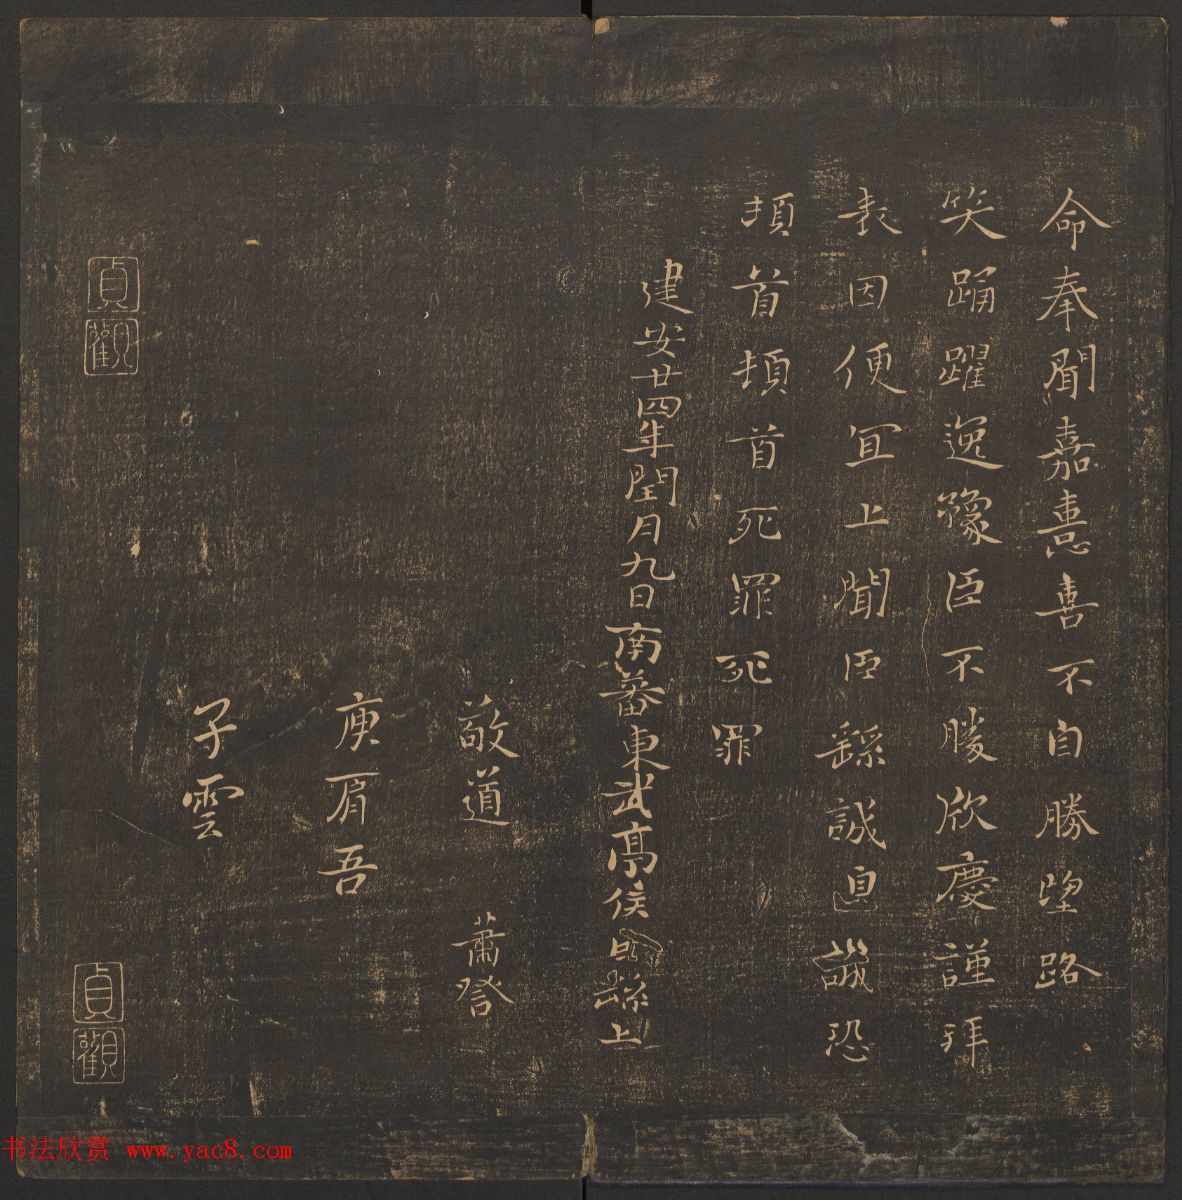 命奉聞嘉憙喜不自勝望路
笑踊躍逸豫臣不勝欣慶謹拜
表因便宜上聞臣繇誠惶誠恐
頓首頓首死罪死罪
建安廿四年閏月九日南蕃東武亭侯臣繇上
敬道 蕭
庾肩吾
子雲
貞觀
貞觀
书法欣赏 www.yac8.com